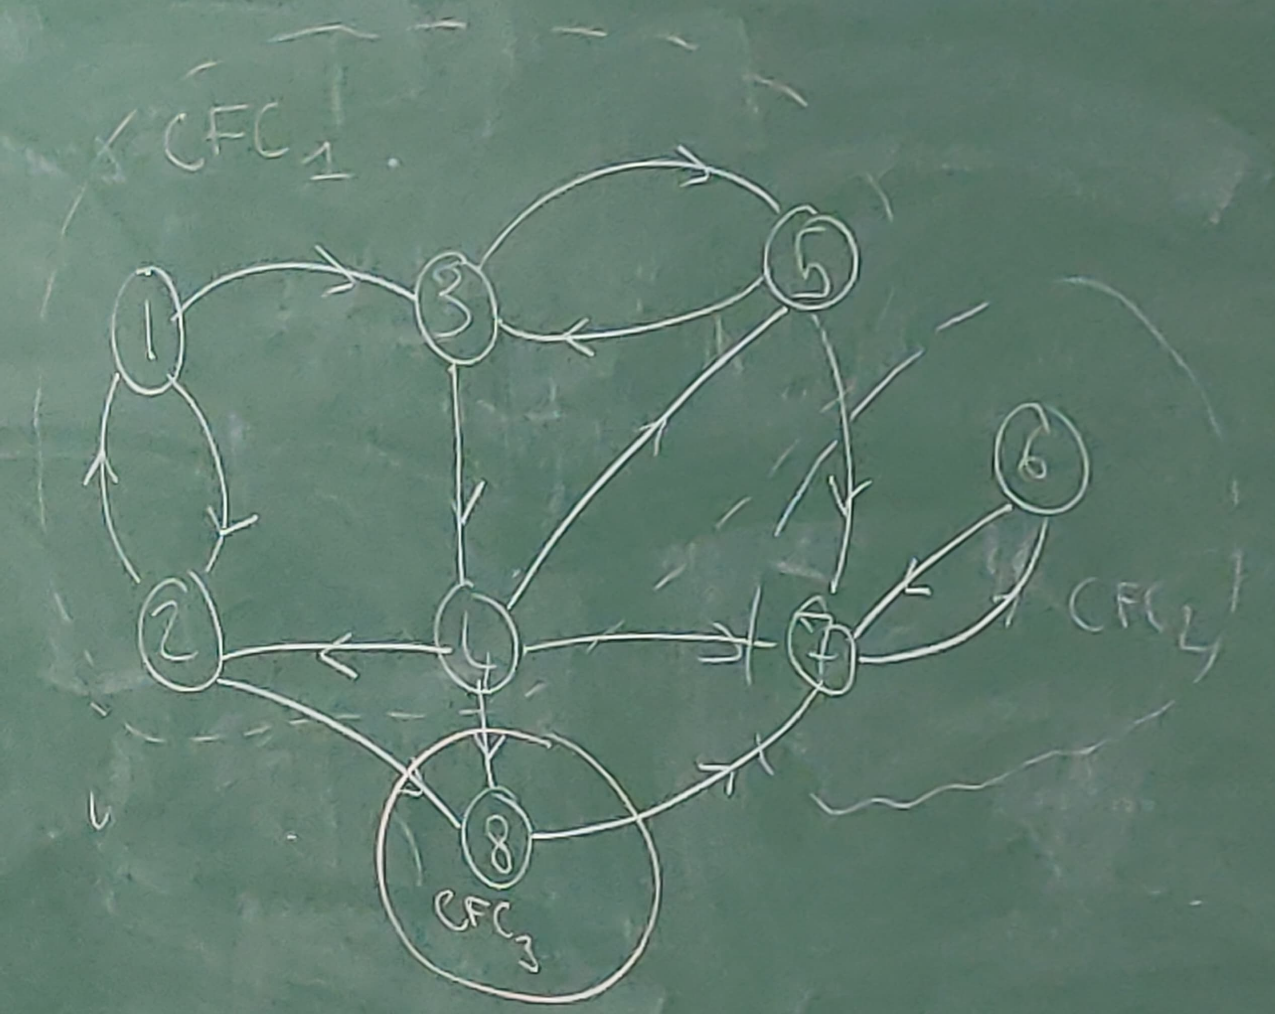 CFC1
5
3
1
6
2
4
7
CFC2
8
CFC3